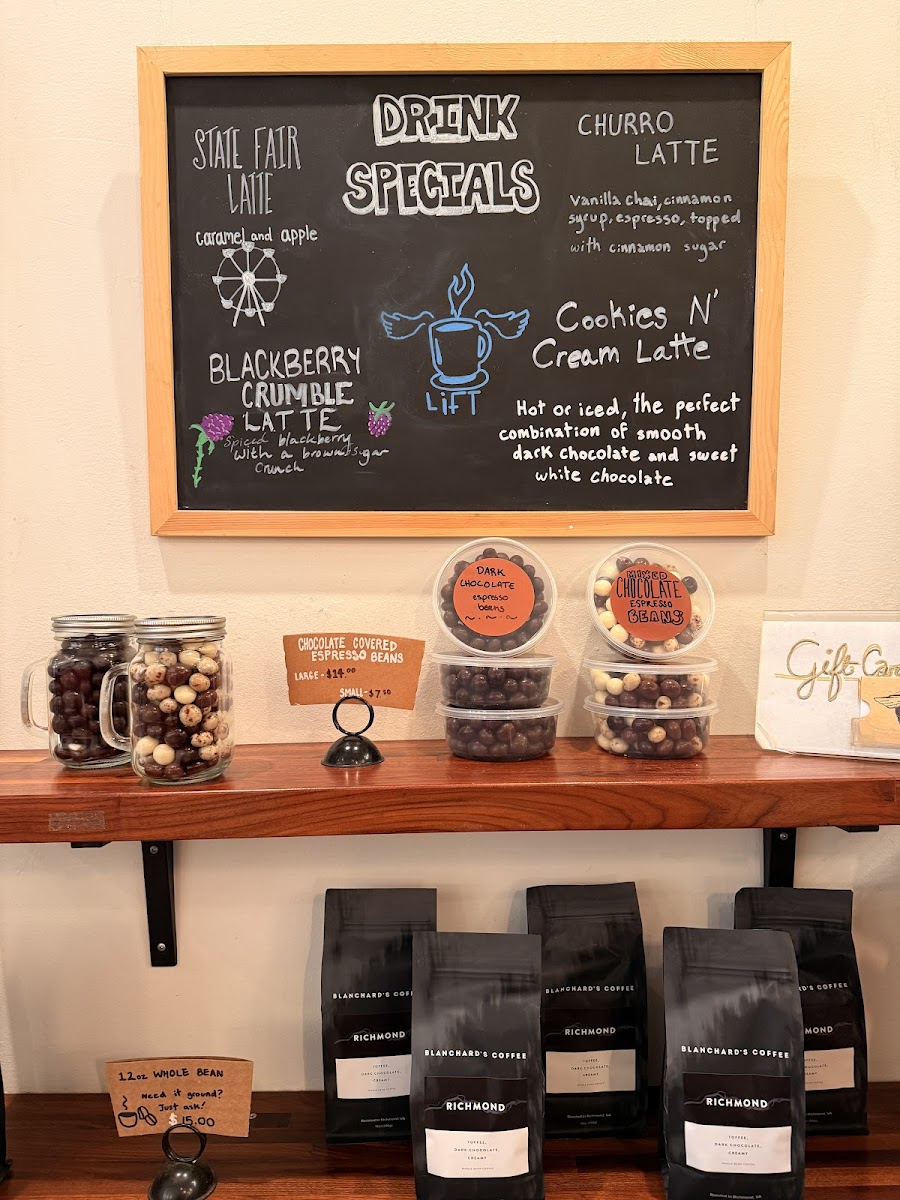 DRINK
SPECIALS
STATE FAIR
LATTE
caramel and apple
CHURRO
LATTE
Vanilla chai, cinnamon
syrup, espresso, topped
with cinnamon sugar
LIFT
BLACKBERRY
CRUMBLE
LATTE
Spiced blackberry
with a brown sugar
crunch
Cookies N'
Cream Latte
Hot or iced, the perfect
combination of smooth
dark chocolate and sweet
white chocolate
CHOCOLATE COVERED
ESPRESSO BEANS
LARGE - $14.00
SMALL - $7.50
DARK
CHOCOLATE
espresso
beans
MIXED
CHOCOLATE
ESPRESSO
BEANS
Gift Car
12oz WHOLE BEAN
Need it ground?
Just ask!
$15.00
BLANCHARD'S COFF
RICHMOND
TOFFEE,
DARK CHOCOLATE,
CREAMY
BLANCHARD'S COFFEE
RICHMOND
TOFFEE,
DARK CHOCOLATE,
CREAMY
WHOLE BEAN COFFEE
BLANCHARD'S COFFEE
RICHMOND
TOFFEE,
DARK CHOCOLATE,
CREAMY
BLANCHARD'S COFFEE
RICHMOND
TOFFEE,
DARK CHOCOLATE,
CREAMY
WHOLE BEAN COFFEE
COFFEE
RICHMOND